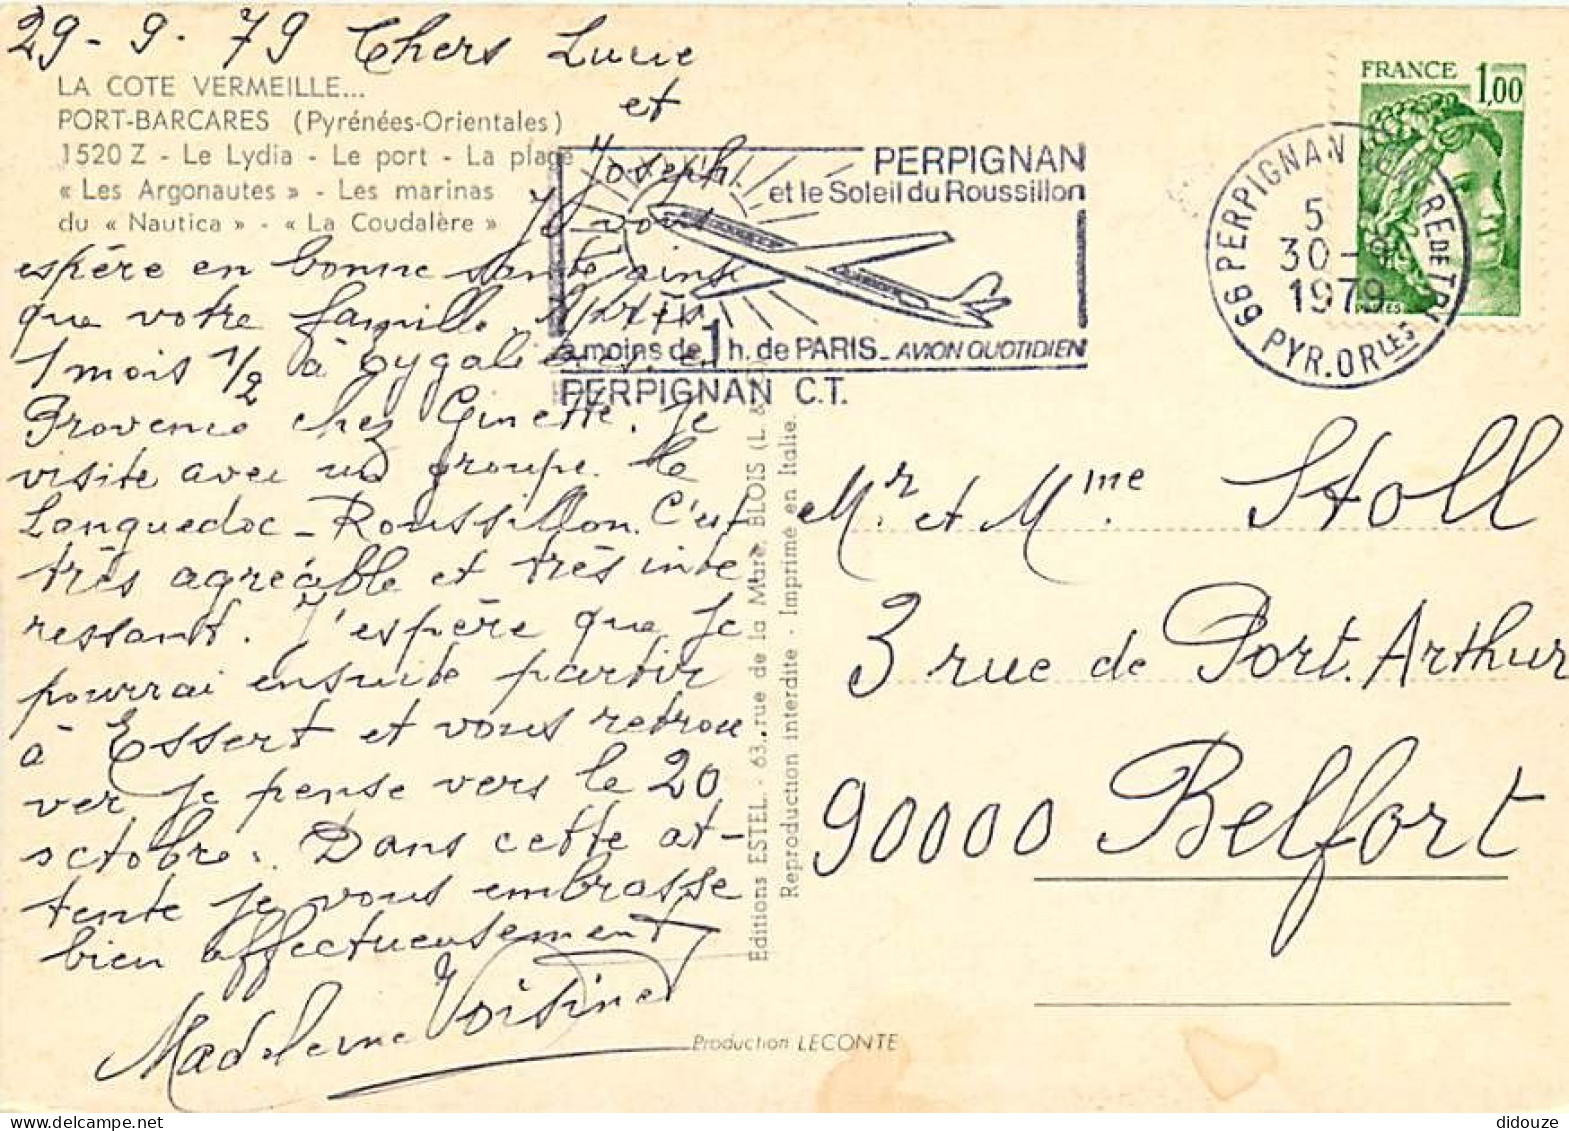 29-9-79 Chers Lucie
et
Joseph.
LA COTE VERMEILLE...
PORT-BARCARES (Pyrénées-Orientales)
1520 Z - Le Lydia - Le port - La plage
« Les Argonautes » - Les marinas
du « Nautica » - « La Coudalère »
Je vous
espère en bonne santé ainsi
que votre famille. Après
1 mois 1/2 à Eygalières en
Provence chez Ginette. Je
visite avec un groupe le
Languedoc-Roussillon. C'est
très agréable et très inte
ressant. J'espère que je
pourrai ensuite partir
à Essert et vous retrou
ver je pense vers le 20
octobre. Dans cette at-
tente je vous embrasse
bien affectueusement
Madeleine Voisinet
PERPIGNAN
et le Soleil du Roussillon
a moins de 1 h. de PARIS_ AVION QUOTIDIEN
PERPIGNAN C.T.
66 PERPIGNAN CENTRE DE TRI
5
30-9
1979
PYR.OR LES
FRANCE 1,00
POSTES
Editions ESTEL. - 63, rue de la Mare. BLOIS (L. &
Reproduction interdite - Imprimé en Italie.
Mr. et Mme. Stoll
3 rue de Port. Arthur
90000 Belfort
Production LECONTE
didouze